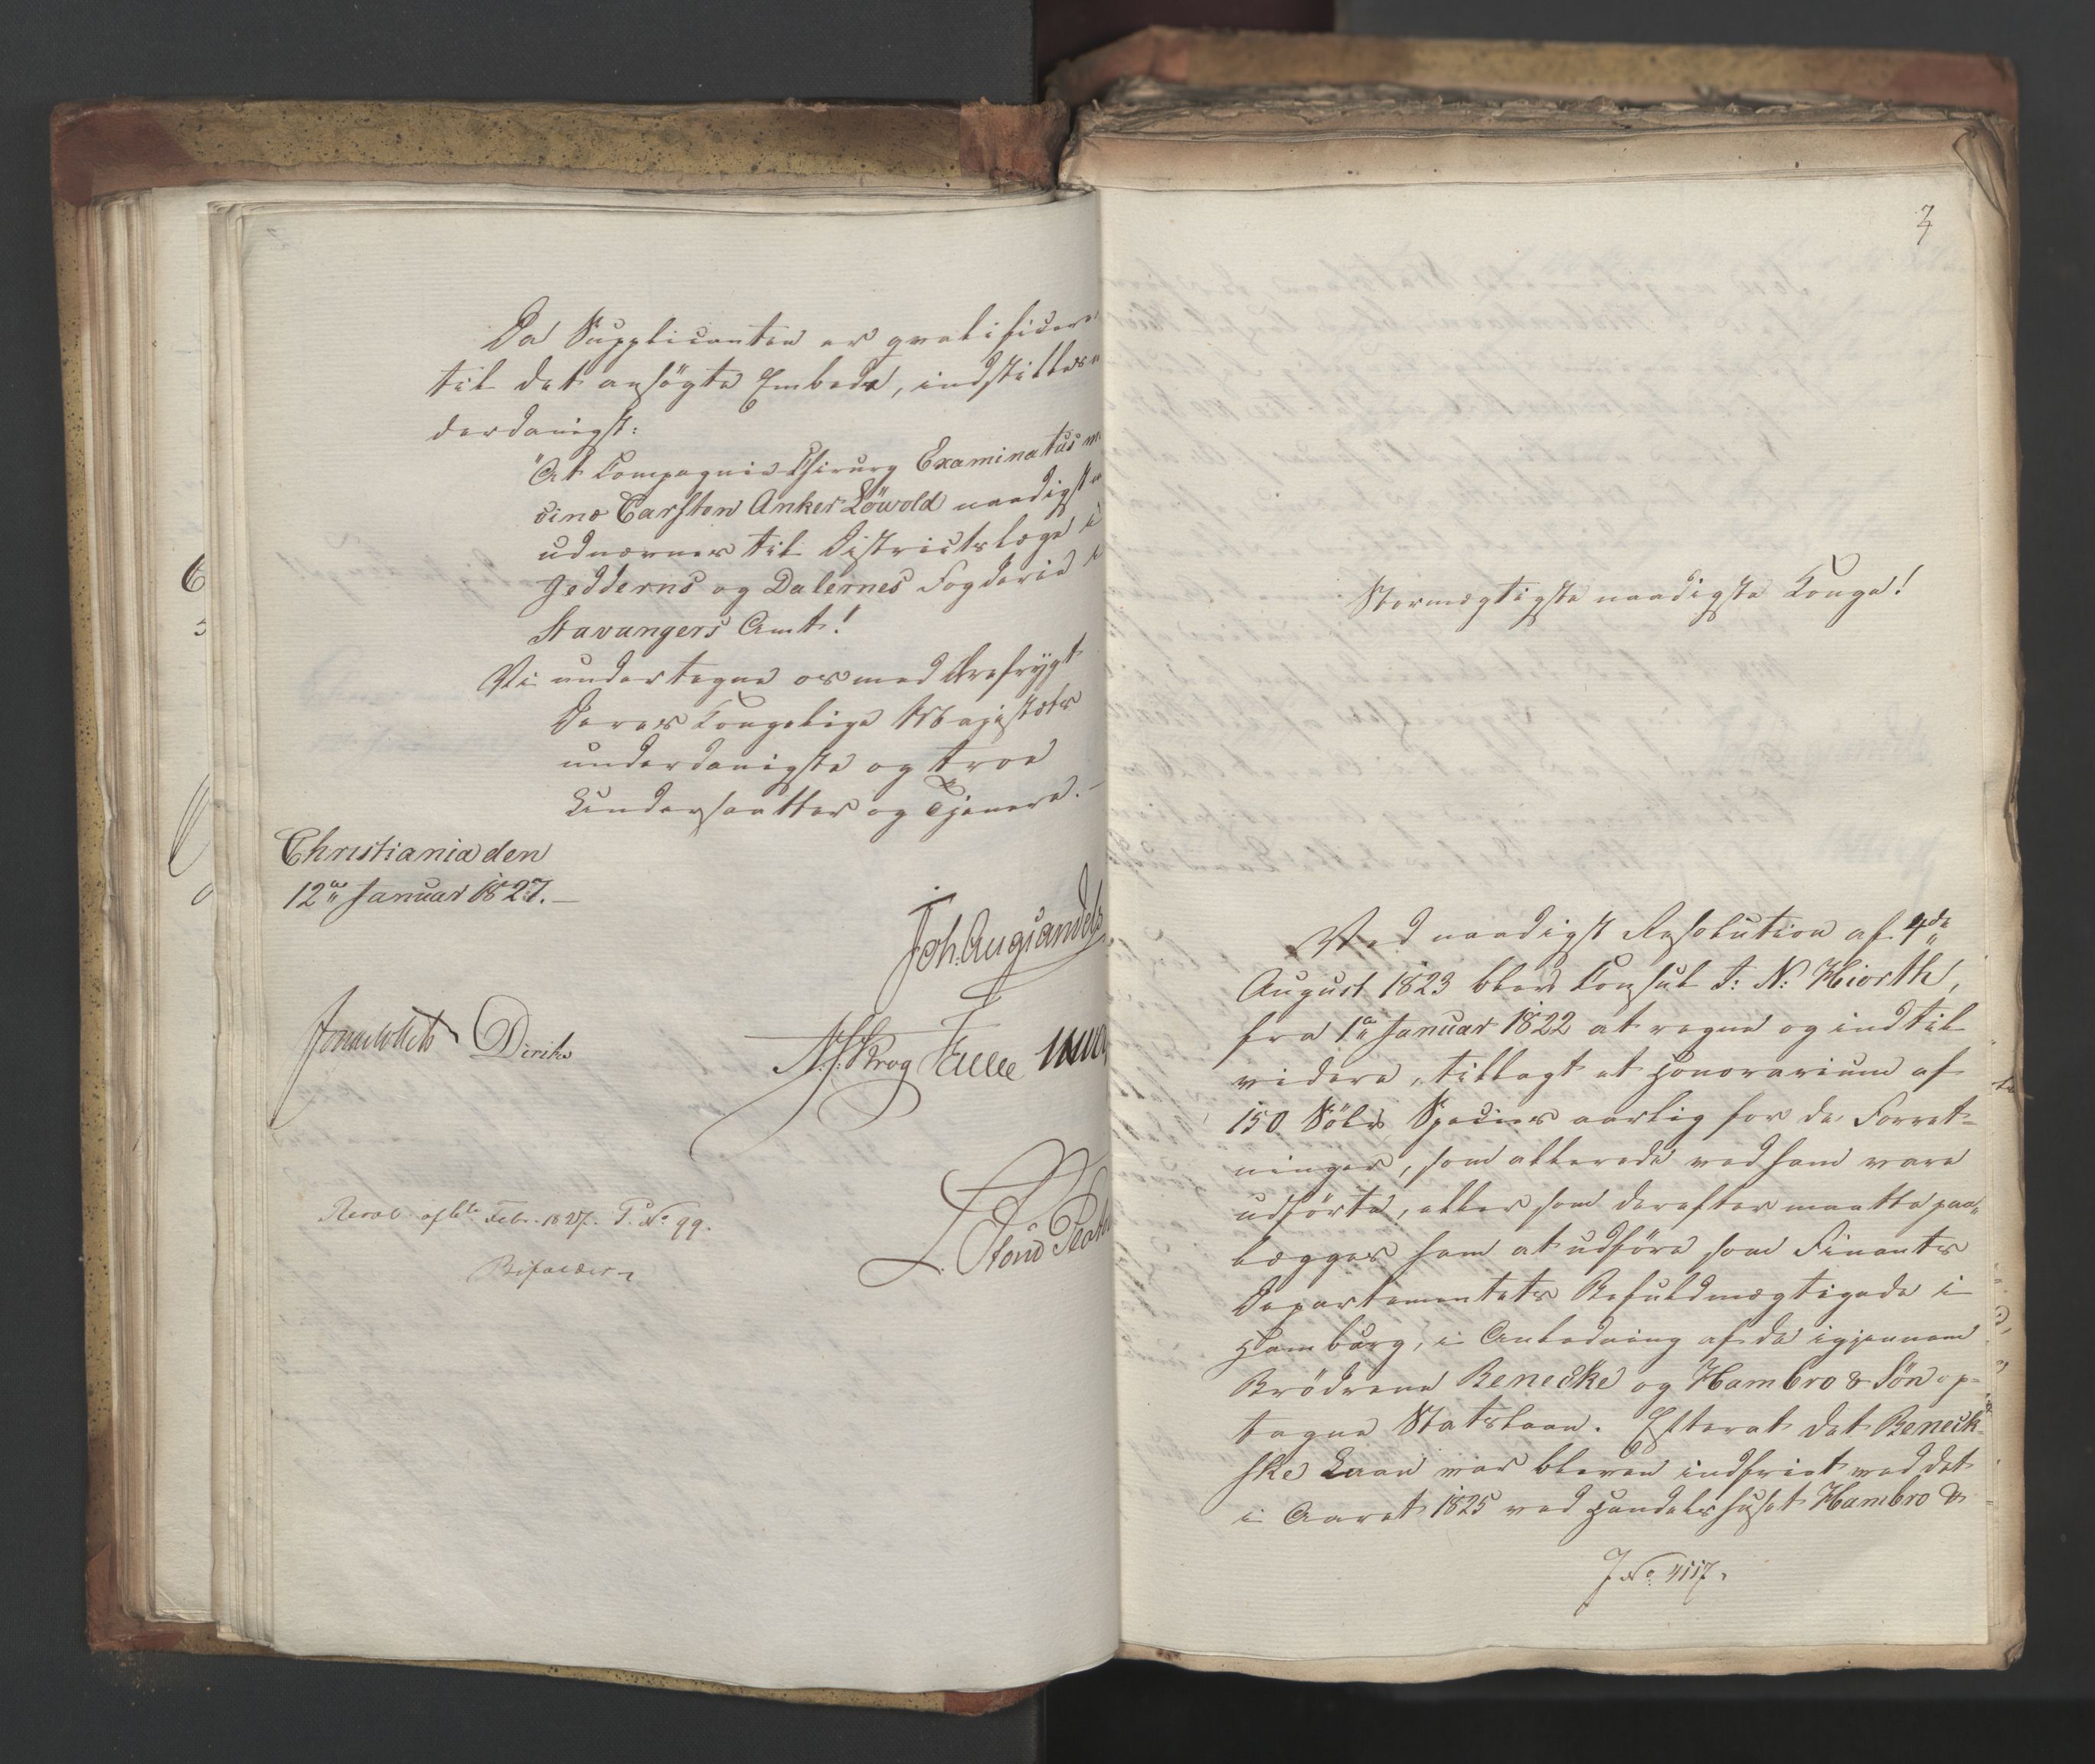 Da Supplicanten er qvalificere
til det ansögte Embede, indstilles
derdanigst:
"At Compagnie Chirurg Examinatus
cinæ Carsten Anker Löwold naadigst
udnævnes til Districtslæge i
Jedderns og Dalernes Fogderie i
Stavangers Amt!
Vi undertegne os med Ærefrygt
Deres Kongelige Majestæts
underdanigste og troe
Undersaatter og Tjenere. –
Christiania den
12te Januar 1827. –
Joh. Aug Sandels
Jonas Collett Diriks
N. J. Krog Falle
L. Stoud Plat
Resol. af 6te Febr. 1827. P. No 99.
Bifaldes
7
Stormægtigste naadigste Konge!
Ved naadigst Resolution af 4de
August 1823 blev Consul J: N: Hiorth,
fra 1te Januar 1822 at regne og indtil
videre, tillagt et Honorarium af
150 Sölv Species aarlig for de Forret-
ninger, som allerede ved ham vare
udförte, eller som derefter maatte paa-
lægges ham at udföre som Finants
Departementets Befuldmægtigede i
Hamburg, i Anledning af de igjennem
Brödrene Benecke og Hambro & Sön op-
tagne Statslaan. Efterat det Beneck-
ske Laan var bleven indfriet ved det
i Aaret 1825 ved Handelshuset Hambro &
J No 4117.